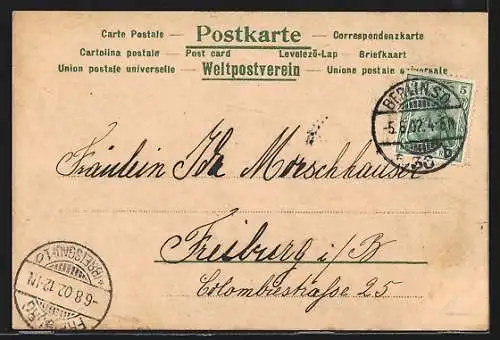 Carte Postale — Postkarte — Correspondenzkarte
Cartolina postale — Post card — Levelező-Lap — Briefkaart
Union postale universelle — Weltpostverein — Unione postale universale
5
BERLIN S.W.
-5.8.02.4-5N
Fräulein Ida Morschhauser
Freiburg i/B
Colombiestraße 25
(BREISGAU)
-6.8.02.12-1N